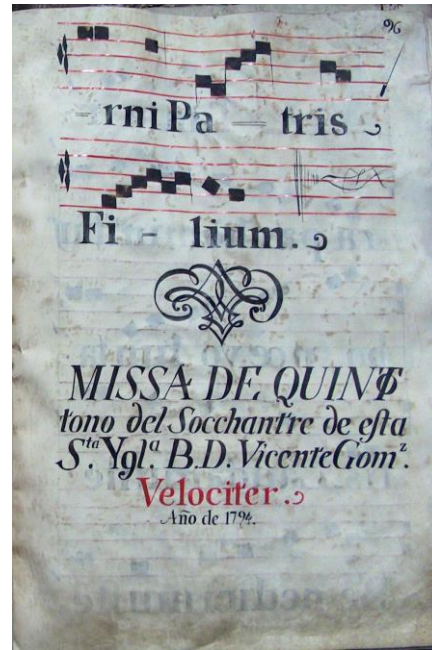 96
- rni Pa - tris
Fi - lium.
MISSA DE QUINTO
tono del Socchantre de esta
S.ta Ygl.a B.D. Vicente Gom.z
Velociter.
Año de 1794.